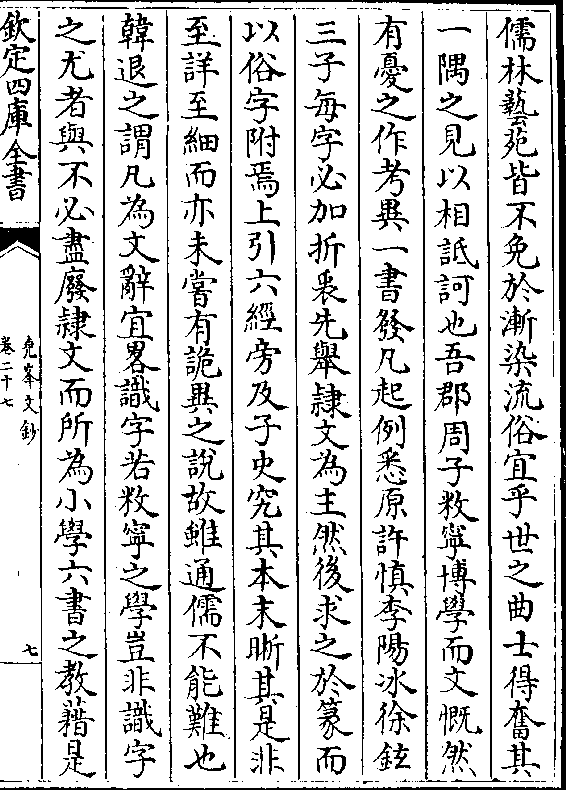 儒林藝苑皆不免於漸染流俗宜乎世之曲士得奮其
一隅之見以相詆訶也吾郡周子敉寧博學而文慨然
有憂之作考異一書發凡起例悉原許慎李陽冰徐鉉
三子每字必加折衷先舉隷文為主然後求之於篆而
以俗字附焉上引六經旁及子史究其本末晰其是非
至詳至細而亦未嘗有詭異之說故雖通儒不能難也
韓退之謂凡為文辭宜畧識字若敉寧之學豈非識字
之尤者與不必盡廢隷文而所為小學六書之教藉是
欽定四庫全書
堯峯文鈔
卷二十七
七